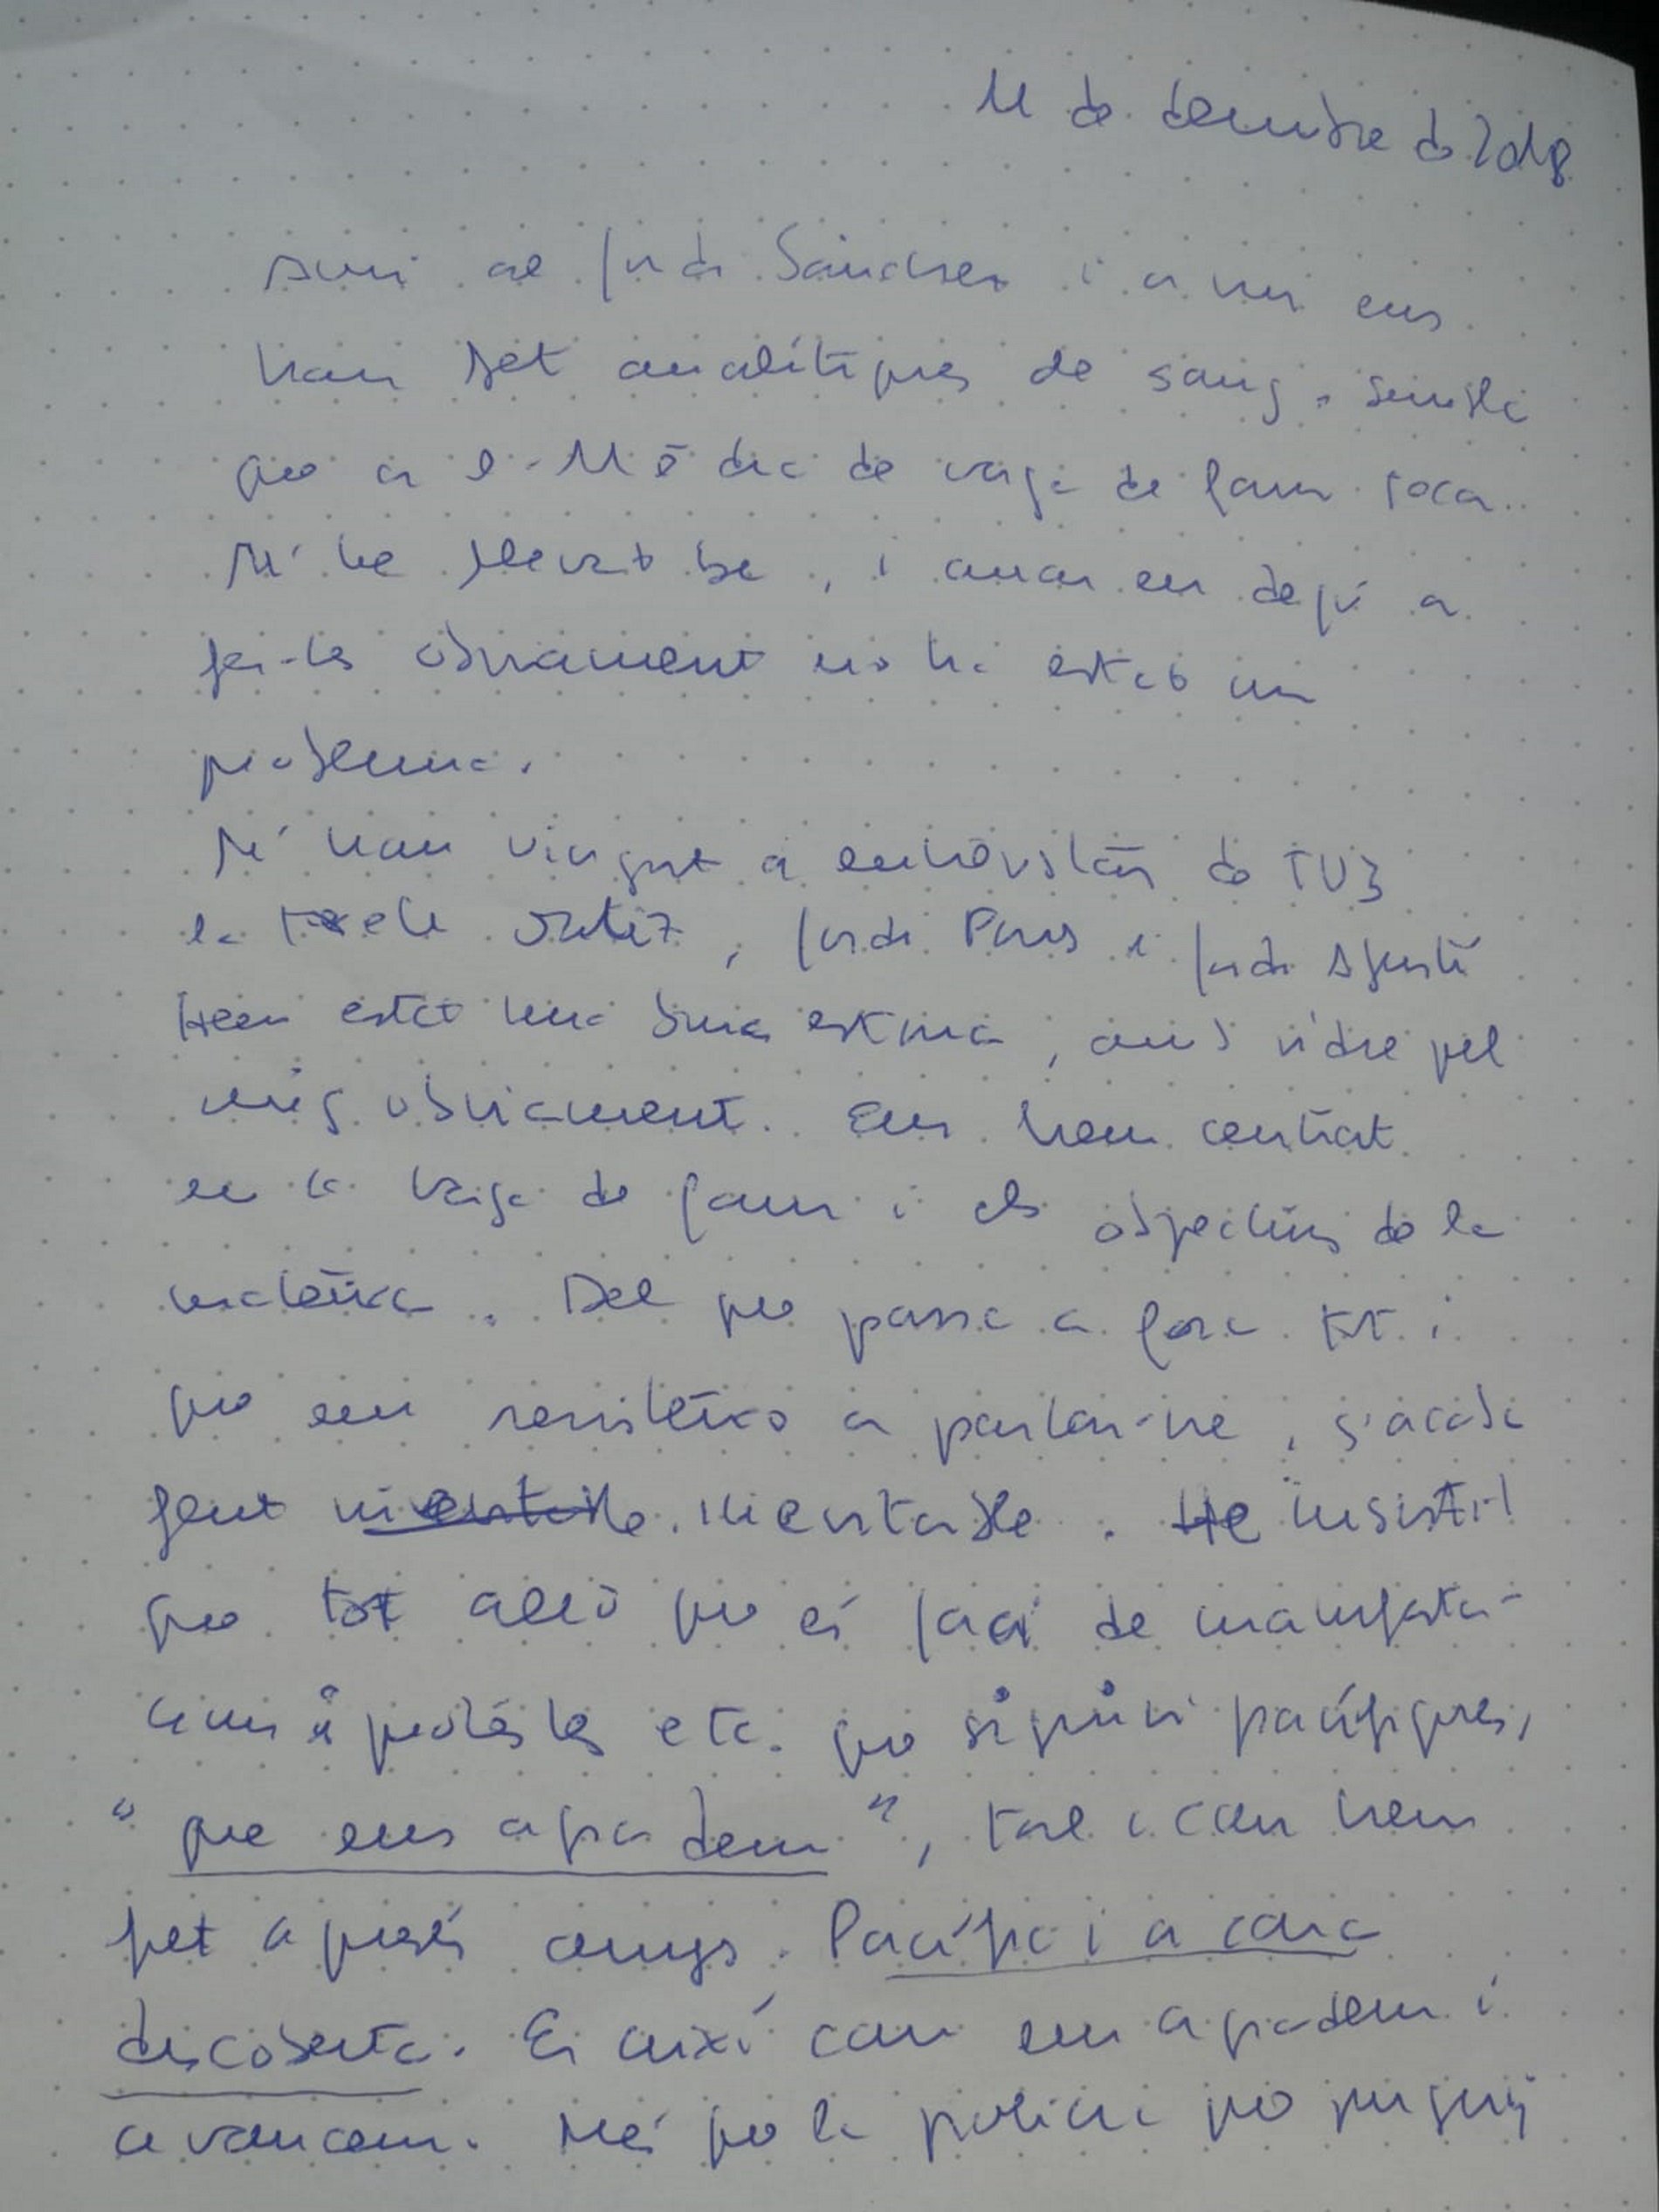 11 de desembre de 2018
Avui al Jordi Sànchez i a mi ens
han fet analítiques de sang. Sembla
que a l'11è dia de vaga de fam toca.
M'he llevat bé, i anar en dejú a
fer-les òbviament no ha estat un
problema.
M'han vingut a entrevistar de TV3
la Ortiz, Jordi Pons i Jordi
Hem estat una bona estona, amb vidre pel
mig obviament. Ens hem centrat
en la vaga de fam i els objectius de la
mateixa. Del que passa a fora tot i
que em resisteixo a parlar-ne, s'acaba
fent inevitable. He insistit
que tot allò que es faci de manifesta-
cions i protestes etc. que siguin pacífiques,
"que ens agradem", tal i com hem
fet aquests anys. Pacífic i a cara
descoberta. És així com ens agradem i
avancem. Més que la policia que pugui